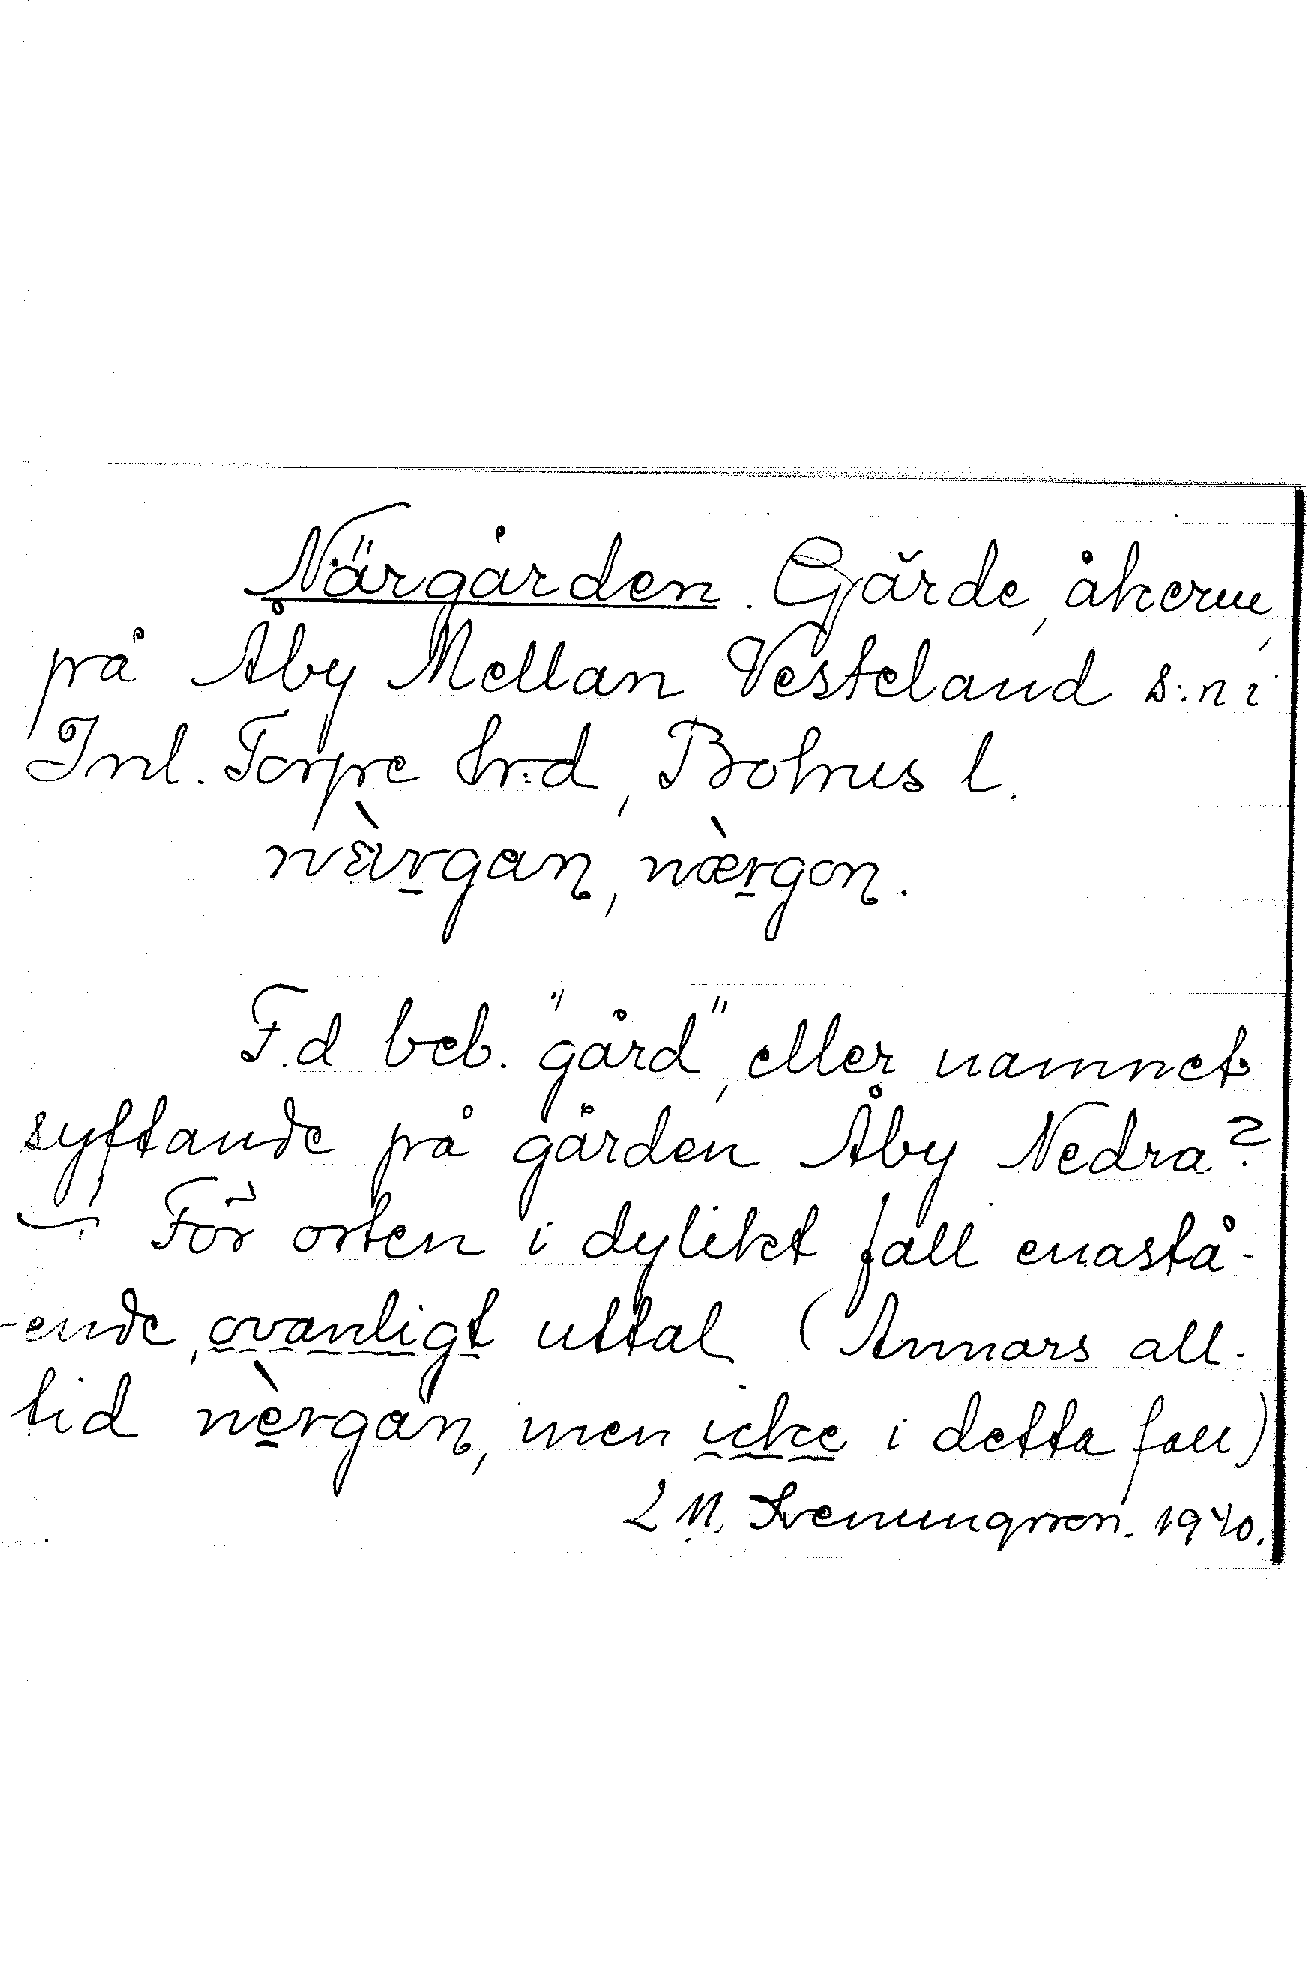 Närgården. Gärde, åkerm,
på Åby Mellan Vesteland s:n i
Inl. Torpe hr:d, Bohus l.
närgan, nærgon.
F.d beb. "gård", eller namnet
syftande på gården Åby Nedra?
– För orten i dylikt fall enastå-
-ende, ovanligt uttal (Annars all-
tid nèrgan, men icke i detta fall)
L M. Svenungsson. 1940.